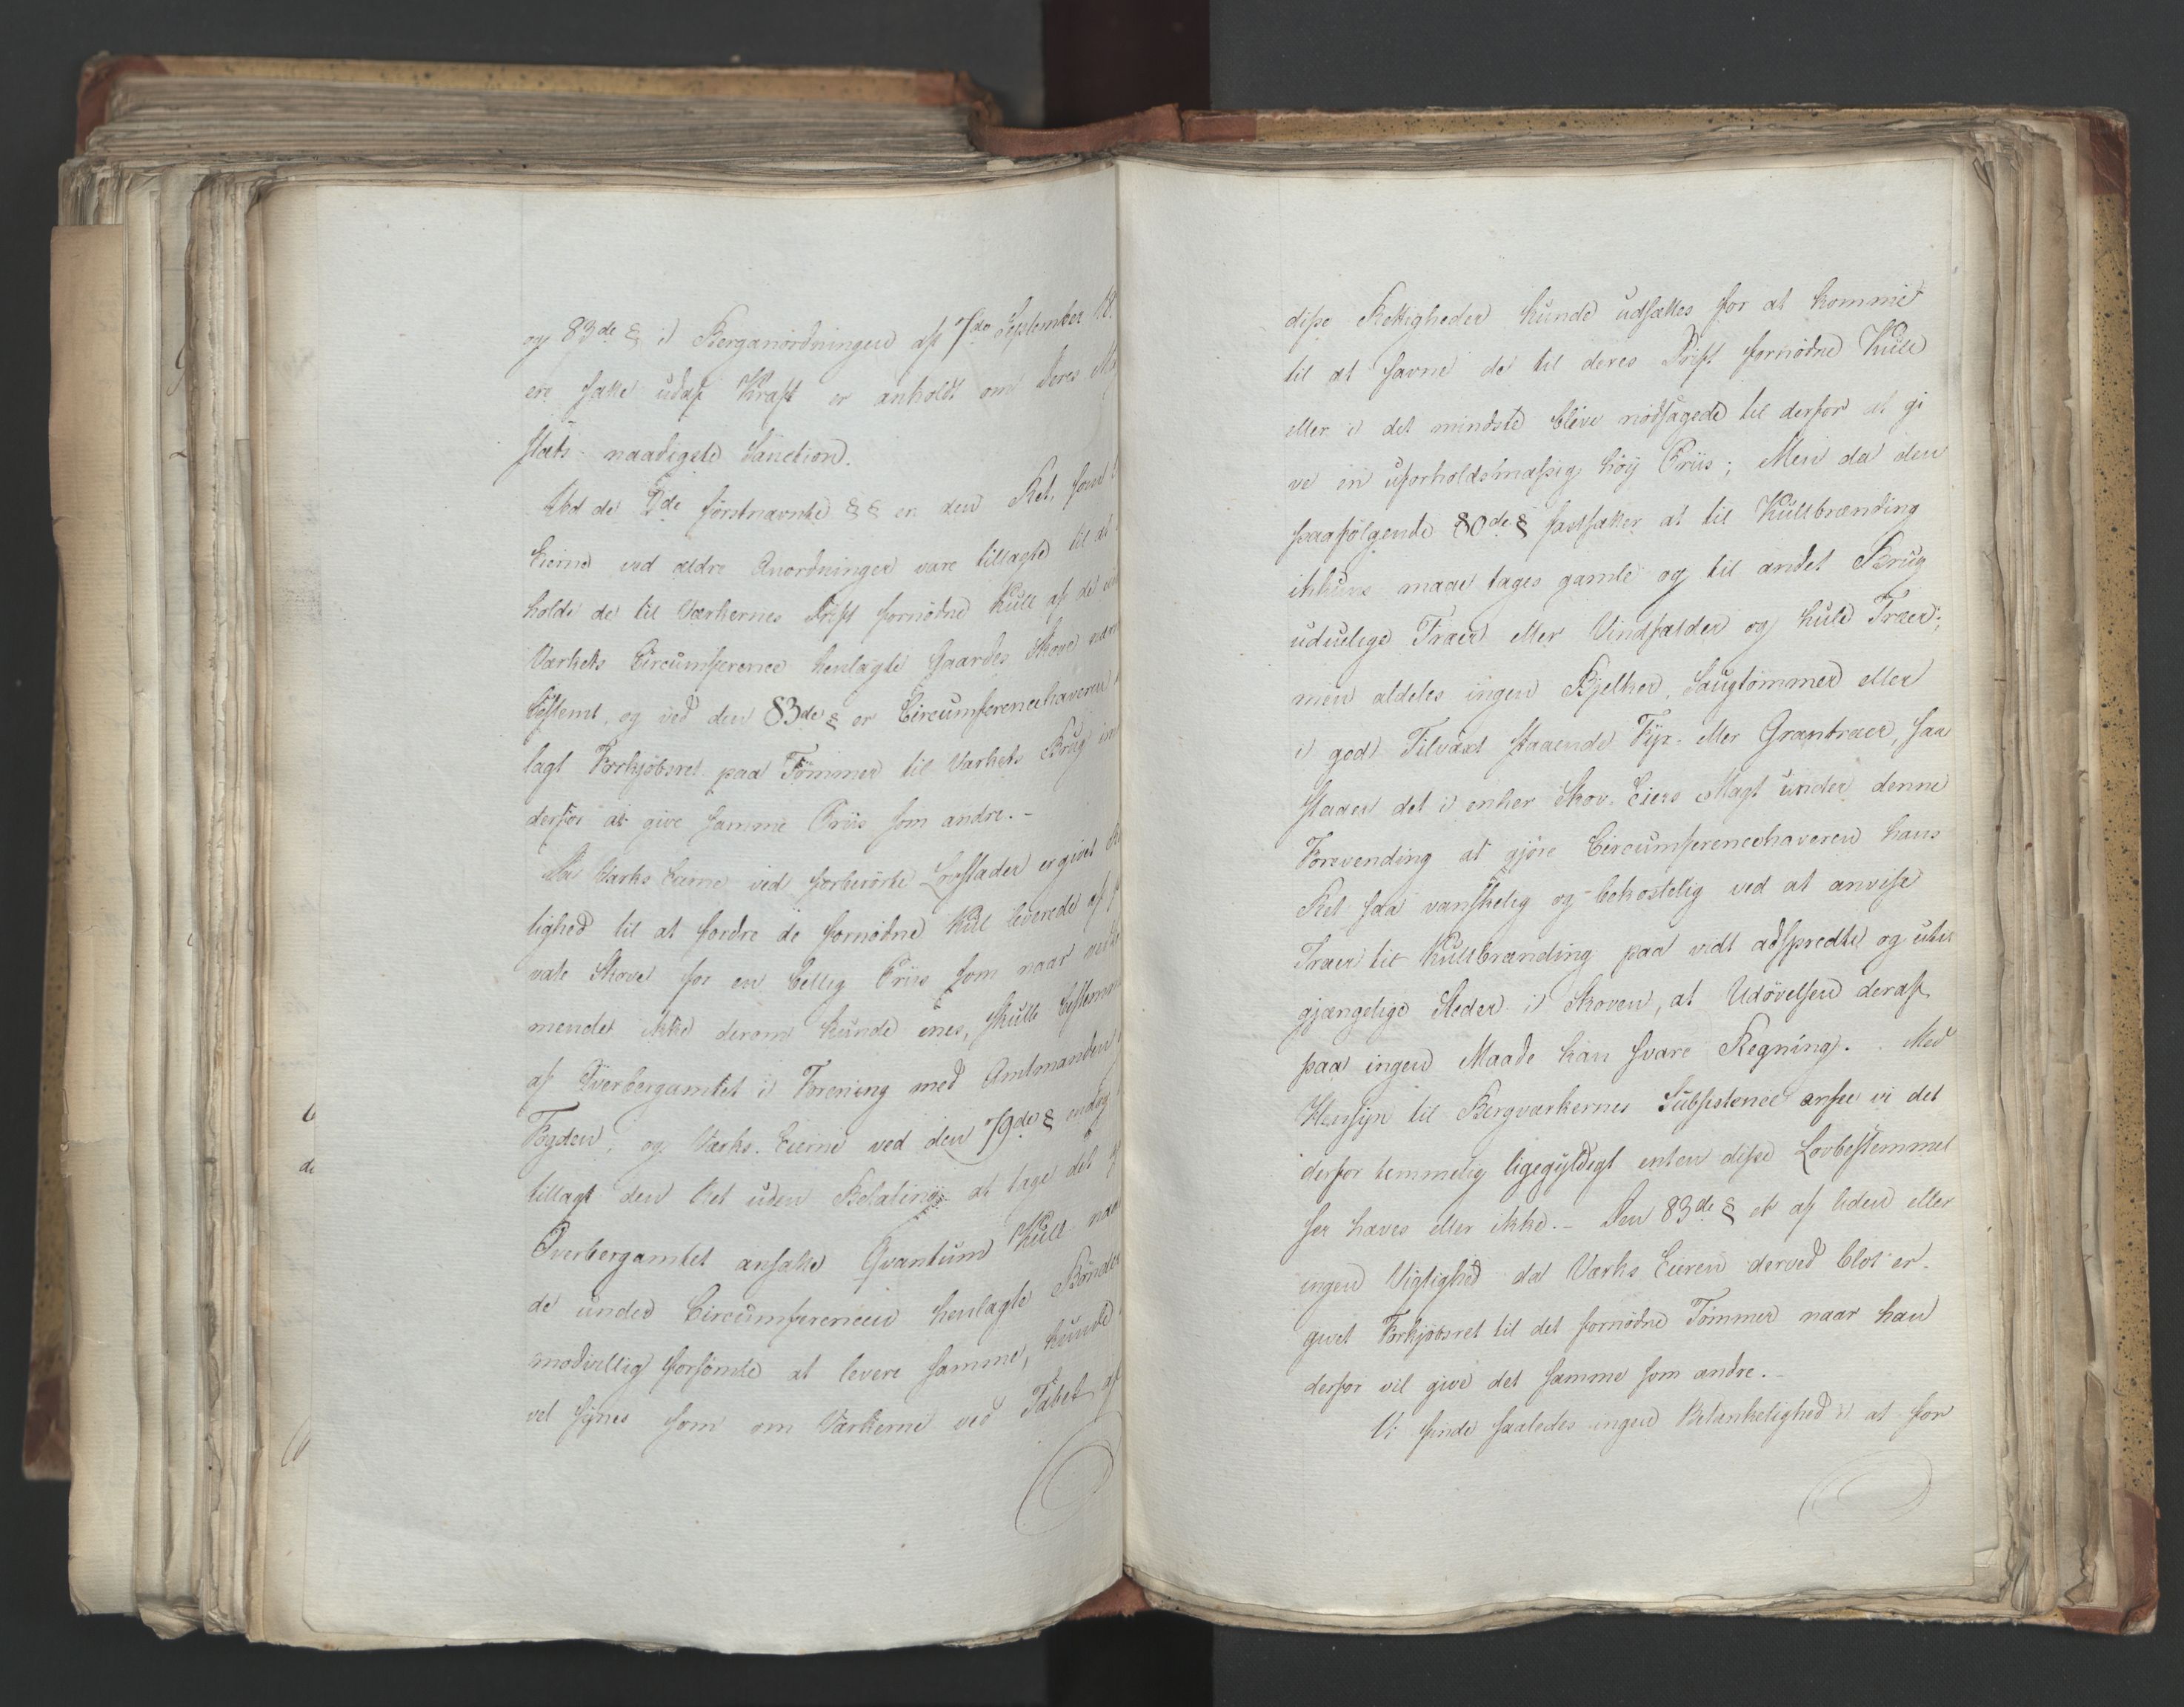 og 83de § i Berganordningen af 7de September 18
ere satte udaf Kraft er anholdt om Deres Ma
jestæts naadigste Sanction.
Ved de 2de förstnævnte §§ er den Ret, som
Eierne ved ældre Anordninger vare tillagte til at
holde de til Værkernes Drift fornödne Kull af de
Værkets Circumference henlagte Gaardes Skove
bestemt, og ved den 83de § er Circumferencehaveren
lagt Forkjöbsret paa Tömmer til Værkets Brug
derfor at give samme Priis som andre. -
Da Værks Eierne ved forberörte Lovsteder er givet
lighed til at fordre de fornödne Kull leverede af
vate Skove for en billig Priis som naar
mender ikke derom kunde enes, skulle bestemmes
af Överbergamtet i Forening med Amtmanden
Fogden, og Værks-Eierne ved den 79de § endog
tillagt den Ret uden Betaling at tage det af
Overbergamtet ansatte Qvantum Kull naar
de under Circumferencen henlagte Bönder
modvillig forsömte at levere samme, kunde
vel synes som om Værkerne ved Tabet af
disse Rettigheder kunde udsættes for at komme
til at savne de til deres Drift fornödne Kull
eller i det mindste blive nödsagede til derfor at gi
ve en uforholdsmæssig höy Priis; Men da den
paafölgende 80de § fastsætter at til Kullbrænding
ikkuns maae tages gamle og til andet Brug
uduelige Træer eller Vindfælder og hule Træer;
men aldeles ingen Bjelker, Saugtömmer eller
i god Tilvæxt staaende Fyr- eller Grantræer, saa
staaer det i enhver Skov-Eiers Magt under denne
Forevending at gjöre Circumferencehaveren hans
Ret saa vanskelig og bekostelig ved at anvise
Træer til Kullbrænding paa vidt adspredte og util
gjængelige Steder i Skoven, at Udövelsen deraf
paa ingen Maade kan svare Regning. Med
Hensyn til Bergværkernes Subsistence ansee vi det
derfor temmelig ligegyldigt enten disse Lovbestemmel
ser haves eller ikke. - Den 83de § er af liden eller
ingen Vigtighed da Værks Eieren derved blot er
givet Forkjöbsret til det fornödne Tömmer naar han
derfor vil give det samme som andre. -
Vi finde saaledes ingen Betænkelighed i at for